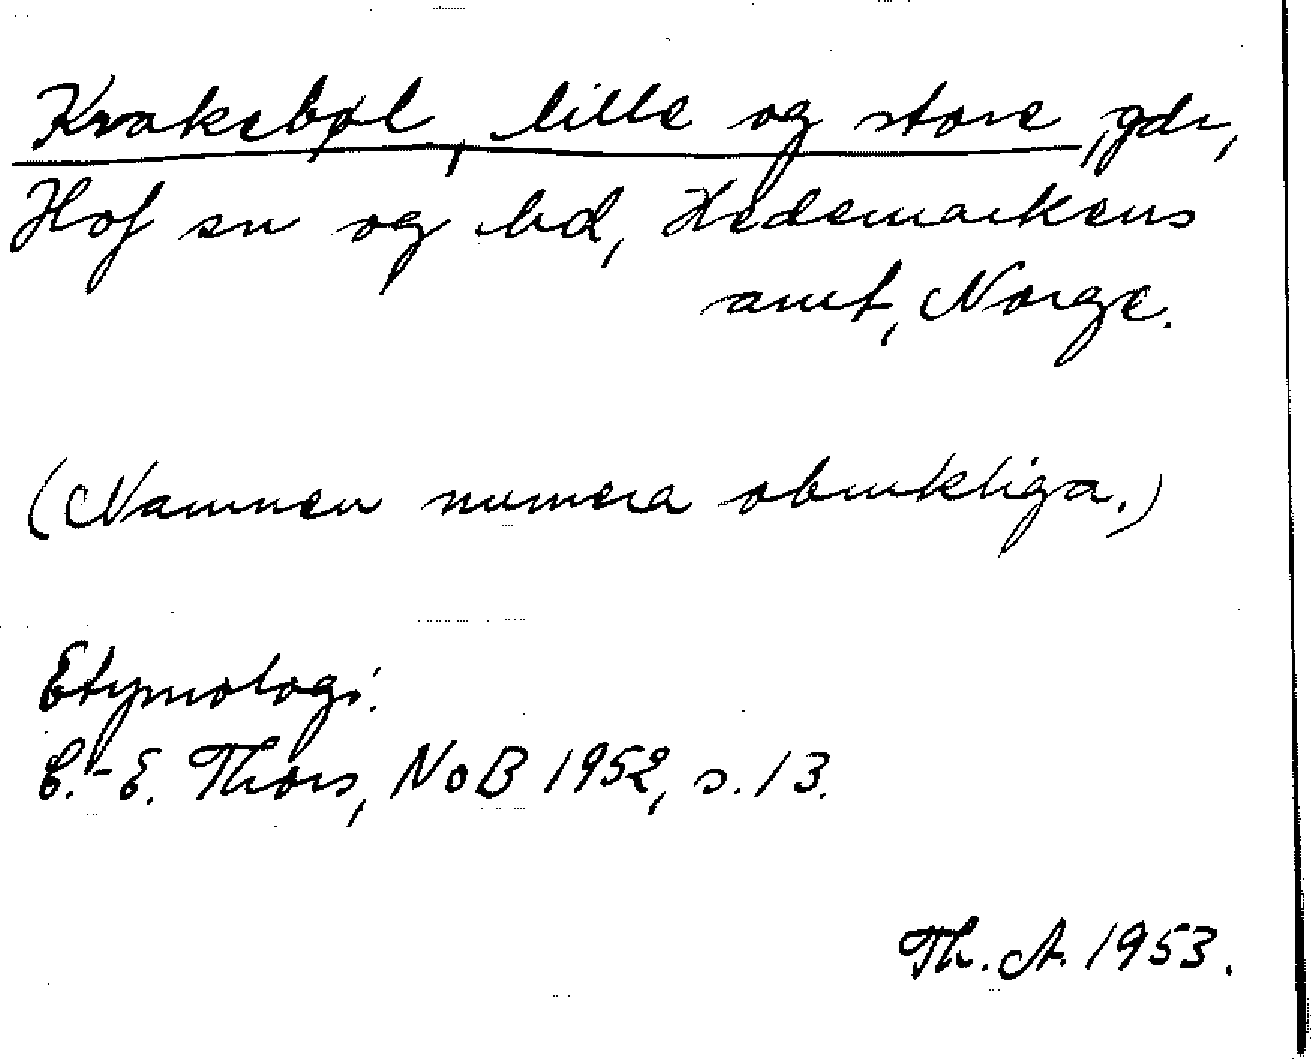 Krakebøl, lille og store, gdr,
Hof sn og hd, Hedemarkens
amt, Norge.
(Namnen numera obrukliga.)
Etymologi:
C.-E. Thors, NoB 1952, s. 13.
Th. A. 1953.